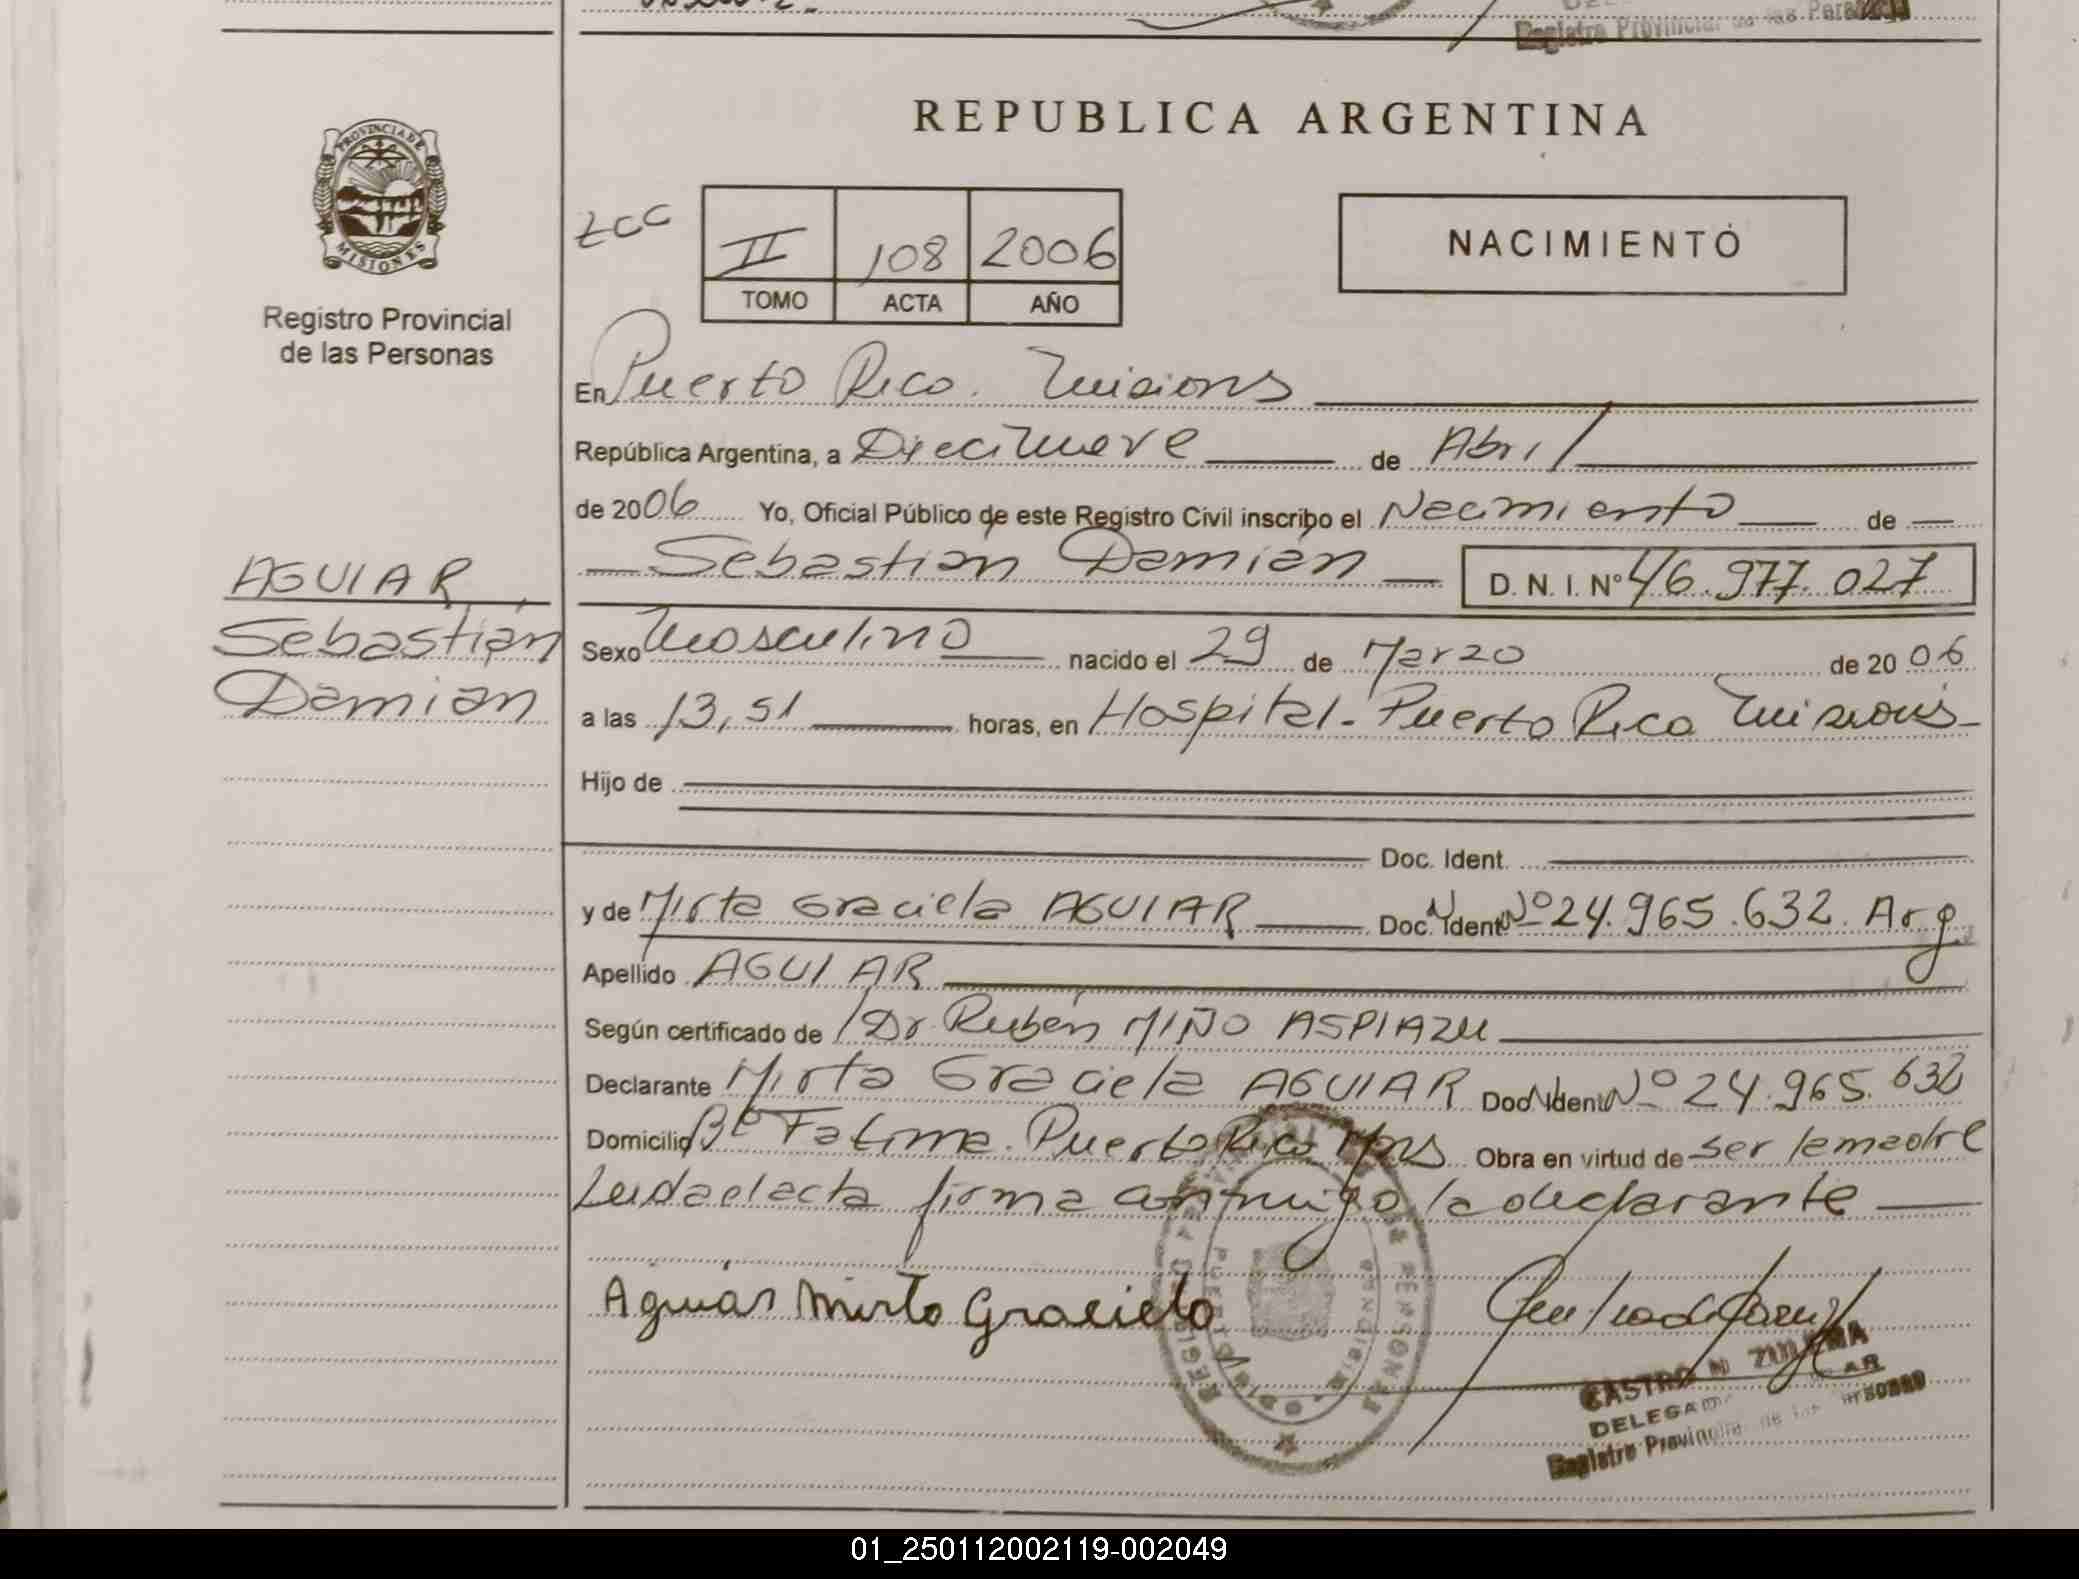 Registro Provincial de las Personas
REPUBLICA ARGENTINA
PROVINCIA DE
MISIONES
Registro Provincial
de las Personas
II 108 2006
TOMO ACTA AÑO
NACIMIENTO
En Puerto Rico. Misiones
República Argentina, a Diecinueve de Abril
de 2006 Yo, Oficial Público de este Registro Civil inscribo el Nacimiento de
Sebastián Damián D. N. I. Nº 46.977.027
AGUIAR,
Sebastián
Damián
Sexo Masculino nacido el 29 de Marzo de 2006
a las 13,51 horas, en Hospital - Puerto Rico Misiones
Hijo de
Doc. Ident.
y de Mirta Graciela AGUIAR Doc. Ident Nº 24.965.632. Arg
Apellido AGUIAR
Según certificado de Dr. Rubén MIÑO ASPIAZU
Declarante Mirta Graciela AGUIAR Doc Ident Nº 24.965.632
Domicilio Bº Fatima. Puerto Rico Mns Obra en virtud de ser la madre
Leida el acta firma conmigo la declarante
Aguiar Mirta Graciela
CASTRO N ZULEMA
DELEGADA
Registro Provincial de las Personas
01_250112002119-002049